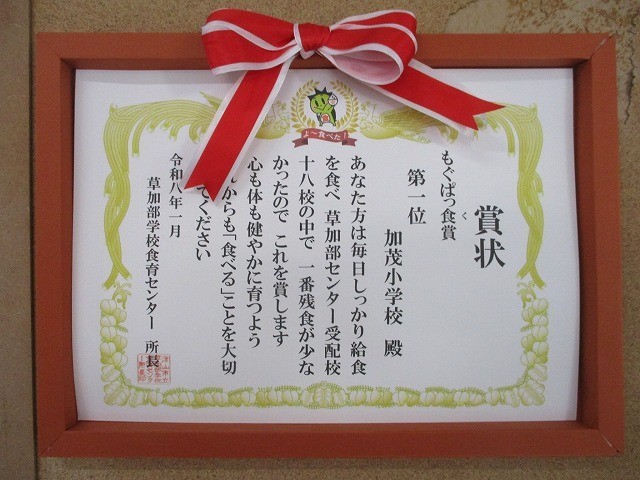 よ〜食べた!
賞状
もぐぱっ食賞
く
第一位
加茂小学校 殿
あなた方は毎日しっかり給食
を食べ 草加部センター受配校
十八校の中で 一番残食が少な
かったので これを賞します
心も体も健やかに育つよう
からも「食べる」ことを大切
てください
令和八年一月
草加部学校食育センター 所長